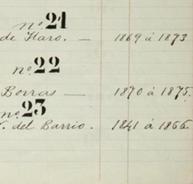 nº 21
de Haro. — 1869 á 1873
nº 22
Borras — 1870 á 1875.
nº 23
. del Barrio. — 1841 á 1866.